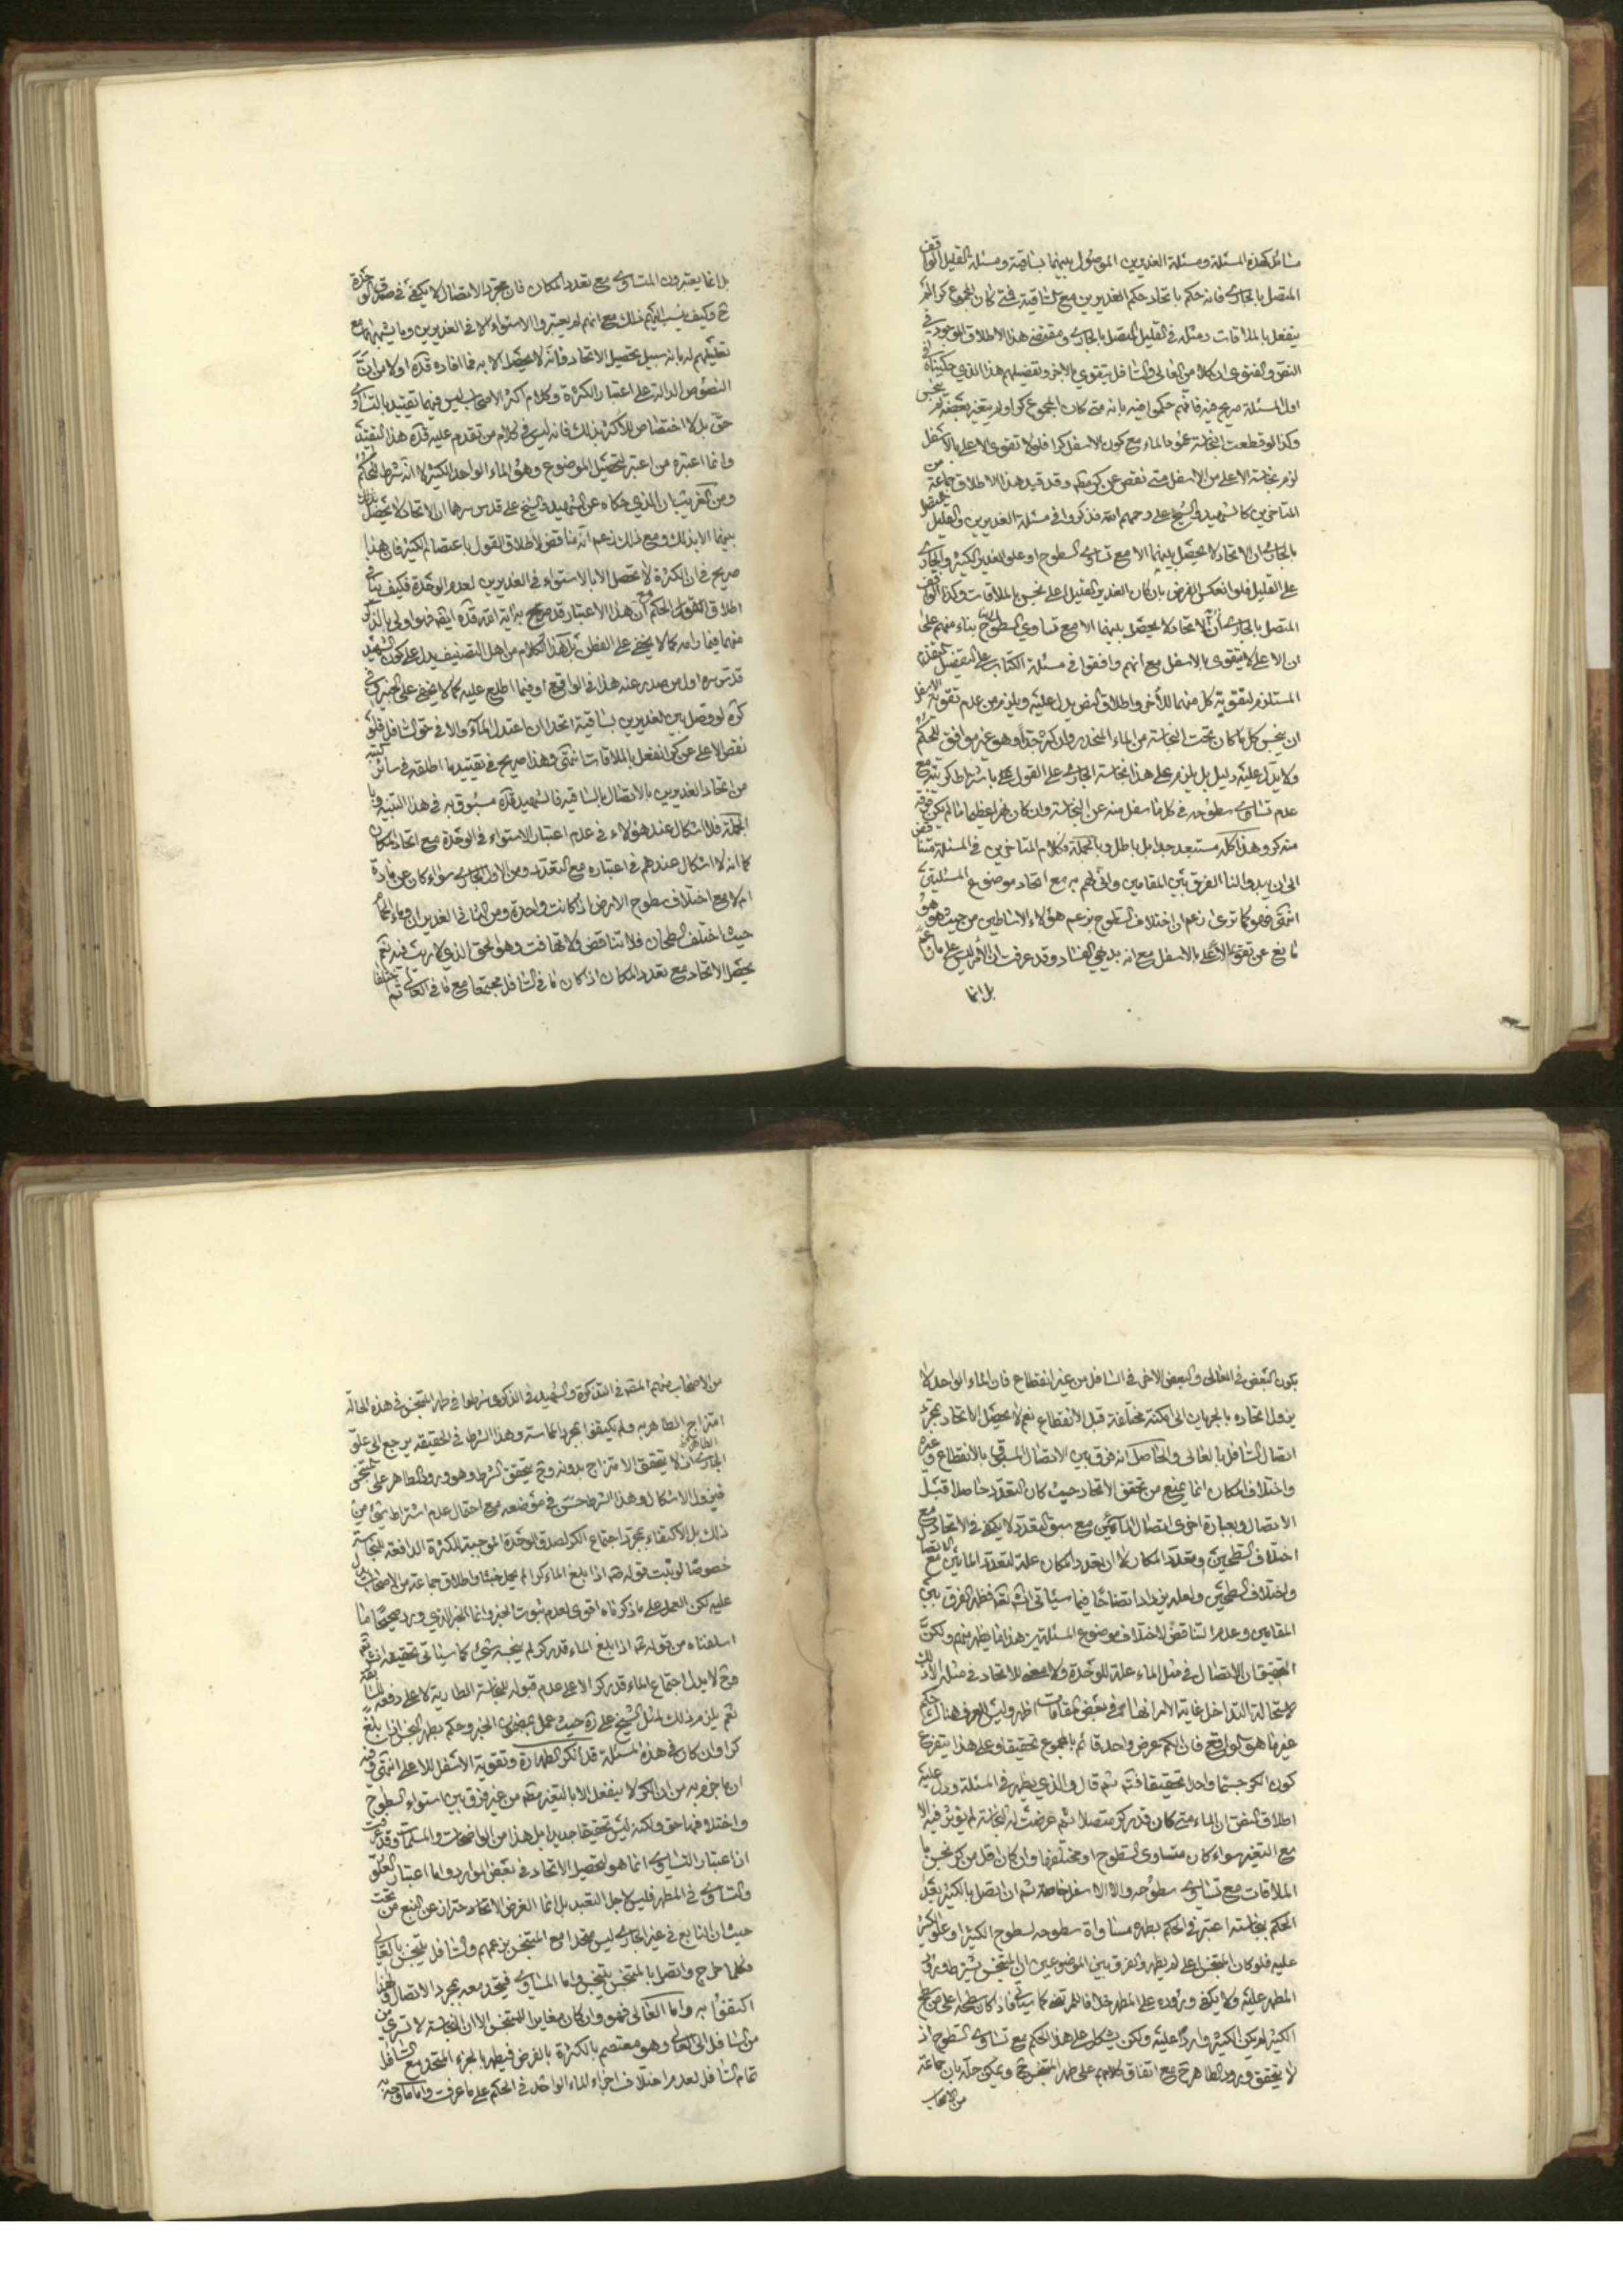 مسائل كهذه المسئلة ومسئلة الغديرين الموصول بينهما بساقية ومسئلة القليل الواقف
المتصل بالجاري فانه حكم باتحاد حكم الغديرين مع الساقية فمتى كان المجموع كرا لم
ينفعل بالملاقات ومثله في القليل المتصل بالجاري ومقتضى هذا الاطلاق الموجود في
النص والفتوى ان كلا من العالي والسافل يتقوى بالاخر وتفصيلهم هذا الذي حكيناه في
اول المسئلة صريح فيه فانهم حكموا فيه بانه متى كان المجموع كرا ولم يتغير بعضه لم ينجس
وكذا لو قطعت النجاسة عمود الماء مع كون الاسفل كرا فلولا تقوى الاعلى بالاسفل
لزم نجاسة الاعلى من الاسفل متى نقص عن كر وقد قيد هذا الاطلاق جماعة من
المتاخرين كالشهيد والشيخ علي رحمهم الله فذكروا في مسئلة الغديرين والقليل المتصل
بالجاري ان الاتحاد لا يحصل بينهما الا مع تساوي السطوح او علو الغدير الكثير والجاري
على القليل فلو انعكس الفرض بان كان الغدير القليل اعلى نجس بالملاقات وكذا الواقف
المتصل بالجاري لان الاتحاد لا يحصل بينهما الا مع تساوي السطوح بناء منهم على
ان الاعلى لا يتقوى بالاسفل مع انهم وافقوا في مسئلة الكتاب على التفصيل المتقدم
المستلزم لتقوية كل منهما للاخر واطلاق النص يدل عليه ويلزم من عدم تقويه الاسفل
ان ينجس كل ما كان تحت النجاسة من الماء المنحدر وان كثر جدا وهو غير موافق للحكمة
ولا يدل عليه دليل بل يلزم على هذا نجاسة الجاري على القول باشتراط كريته مع
عدم تساوي سطوحه في كل ما سفل منه عن النجاسة وان كان نهرا عظيما ما لم يكن فوقه
منه كر وهذا كله مستبعد جدا بل باطل وبالجملة فكلام المتاخرين في المسئلة متناقض
الى ان يبدو لنا الفرق بين المقامين وانى لهم به مع اتحاد موضوع المسئلتين
انتهى فهو كما ترى زعم ان اختلاف السطوح بزعم هؤلاء الاساطين من حيث هو هو
مانع عن تقوى الاعلى بالاسفل مع انه بديهي الفساد وقد عرفت ان الامر ليس على ما زعم
بل انما
بل انما يعتبرون المتساوي مع تعدد المكان فان مجرد الاتصال لا يكفي في صدق الوحدة
ح وكيف ينسب اليهم ذلك مع انهم لم يعتبروا الاستواء الا في الغديرين وما يشبههما مع
تعليلهم له بانه سبيل تحصيل الاتحاد فانه لا يحصل الا به فما افاده قده اولا من ان
النصوص الدالة على اعتبار الكثرة وكلام اكثر الاصحاب ليس فيهما تقييد بالتساوي
حق بل لا اختصاص للاكثر بذلك فانه ليس في كلام من تقدم عليه قده هذا التقييد
وانما اعتبره من اعتبر لتحصيل الموضوع وهو الماء الواحد الكثير لا انه شرط للحكم
ومن الغريب ان الذي حكاه عن الشهيد والشيخ علي قدس سرهما ان الاتحاد لا يحصل
بينهما الا بذلك ومع ذلك زعم انه مناقض لاطلاق القول باعتصام الكثير فان هذا
صريح في ان الكثرة لا تحصل الا بالاستواء في الغديرين لعدم الوحدة فكيف ينافي
اطلاق القول الحكم مع ان هذا الاعتبار قد صرح به آية الله قده ايضا فهو اولى بالذكر
منهما فيما رامه كما لا يخفى على الفطن بل هذا الكلام من اهل التصنيف يدل على كون الشهيد
قدس سره اول من صدر عنه هذا في الواقع او فيما اطلع عليه كما لا يخفى على الخبير في
كره لو وصل بين الغديرين بساقية اتحدا ان اعتدل الماء والا في حق السافل فلو
نقص الاعلى عن كر انفعل بالملاقات انتهى وهذا صريح في تقييد ما اطلقه في سائر كتبه
من اتحاد الغديرين بالاتصال بالساقية فالشهيد قده مسبوق به في هذا التنبيه وبا
لجملة فلا اشكال عند هؤلاء في عدم اعتبار الاستواء في الوحدة مع اتحاد المكان
كما انه لا اشكال عندهم في اعتباره مع التعدد ومن الاول الجاري سواء كان عن مادة
ام لا مع اختلاف سطوح الارض اذا كانت واحدة ومن الثاني الغديران وماء الحمام
حيث اختلف السطحان فلا تناقض ولا تهافت وهو الحق الذي لا ريب فيه نعم
يحصل الاتحاد مع تعدد المكان اذ كان ما في السافل مجتمعا مع ما في العالي ثم اختلفا
يكون البعض في العالي والبعض الاخر في السافل من غير انقطاع فان الماء الواحد لا
يزول اتحاده بالجريان الى امكنة مختلفة قبل الانقطاع نعم لا يحصل الاتحاد بمجرد
اتصال السافل بالعالي والحاصل انه فرق بين الاتصال المسبوق بالانقطاع وغيره
واختلاف المكان انما يمنع من تحقق الاتحاد حيث كان التعدد حاصلا قبل
الاتصال وبعبارة اخرى اتصال المائين مع سبق التعدد لا يكفي في الاتحاد مع
اختلاف السطحين وتعدد المكان لا ان تعدد المكان علة لتعدد المائين مع الاتصال
واختلاف السطحين ولعله يزداد اتضاحا فيما سياتي انشاء الله تعالى فظهر الفرق بين
المقامين وعدم التناقض لاختلاف موضوع المسئلتين هذا ما يظهر منهم ولكن
التحقيق ان الاتصال في مثل الماء علة للوحدة ولا معنى للاتحاد في مثله الا ذلك
لاستحالة التداخل غاية الامر انها في بعض المقامات اظهر وليس للعرف هناك حكم
غير ما هو الواقع فان الكم عرض واحد قائم بالمجموع تحقيقا وعلى هذا يتفرع
كون الكر جسما واحدا تحقيقا فتم ثم قال والذي يظهر في المسئلة ودل عليه
اطلاق النص ان الماء متى كان قدر كر متصلا ثم عرضت له النجاسة لم تؤثر فيه الا
مع التغير سواء كان متساوي السطوح او مختلفها وان كان اقل من كر نجس با
لملاقات مع تساوي سطوحه والا الاسفل خاصة ثم ان اتصل بالكثير بعد
الحكم بنجاسته اعتبر في الحكم بطهره مساواة سطوحه لسطوح الكثير او علو الكثير
عليه فلو كان المتنجس اعلى لم يطهر والفرق بين الموضوعين ان المتنجس يشترط ورود
المطهر عليه ولا يكفي وروده على المطهر خلافا للمرتضى كما سياتي فاذا كان سطحه اعلى من سطح
الكثير لم يكن الكثير واردا عليه ولكن يشكل على هذا الحكم مع تساوي السطوح اذ
لا يتحقق ورود الطاهر ح مع اتفاق كلامهم على طهر المتنجس ح ويمكن حله بان جماعة
من الاصحاب
من الاصحاب منهم المصنف في التذكرة والشهيد في الذكرى شرطوا في طهر المتنجس في هذه الحالة
امتزاج الطاهر به ولم يكتفوا بمجرد المماسة وهذا الشرط في الحقيقة يرجع الى علو
الجاري اذ لا يتحقق الامتزاج بدونه وح يتحقق الشرط وهو ورود الطاهر على المتنجس
فيزول الاشكال وهذا الشرط حسن في موضعه مع احتمال عدم اشتراط شيء من
ذلك بل الاكتفاء بمجرد اجتماع الكر لصدق الوحدة الموجبة للكثرة الدافعة للنجاسة
خصوصا لو ثبت قوله ص اذا بلغ الماء كرا لم يحمل خبثا واطلاق جماعة من الاصحاب يدل
عليه لكن العمل على ما ذكرناه اقوى لعدم ثبوت الخبر وانما الخبر الذي ورد صحيحا ما
اسلفناه من قوله ع اذا بلغ الماء قدر كر لم ينجسه شيء كما سياتي تحقيقه انشاء الله
وح لا يدل اجتماع الماء قدر كر الا على عدم قبوله للنجاسة الطارية لا على دفعه للسابقة
نعم يلزم ذلك لمثل الشيخ علي ره حيث عمل بمضمون الخبر وحكم بطهر النجس اذا بلغ
كرا وان كان في هذه المسئلة قد انكر الطهارة وتقوية الاسفل للاعلى انتهى وفيه
ان ما جزم به من ان الكر لا ينفعل الا بالتغير مطلقا من غير فرق بين استواء السطوح
واختلافها حق ولكنه ليس تحقيقا جديدا بل هذا من الواضحات والمسلمات وقد عرفت
ان اعتبار التساوي انما هو لتحصيل الاتحاد في بعض الموارد واما اعتبار العلو
والتساوي في المطهر فليس لاجل التعبد بل انما الغرض الاحتراز عن النبع من تحت
حيث ان النابع في غير الجاري ليس متحدا مع المتنجس بزعمهم والسافل يتنجس بالعالي
فكلما خرج واتصل بالمتنجس يتنجس واما المساوي فيتحد معه بمجرد الاتصال ولهذا
اكتفوا به واما العالي فهو وان كان مغايرا للمتنجس الا ان النجاسة لا تسري من
من السافل الى العالي وهو معتصم بالكثرة بالفرض فيطهر الجزء المتحد مع السافل
تمام السافل لعدم اختلاف اجزاء الماء الواحد في الحكم على ما عرفت واما ما وجه به